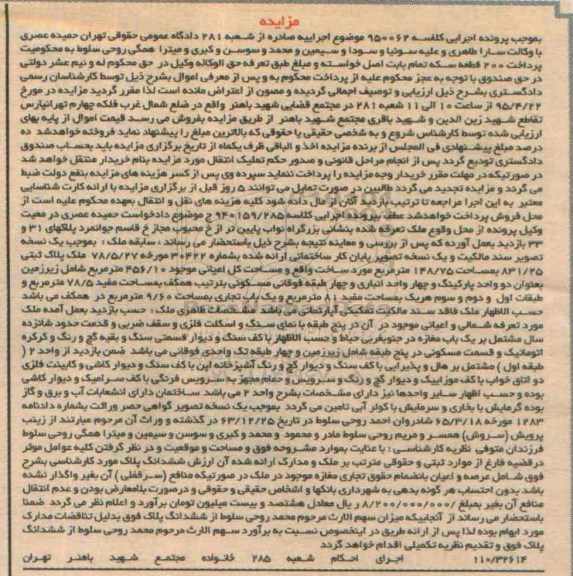 مزایده
بموجب پرونده اجرایی کلاسه ۹۵۰۰۶۲ موضوع اجراییه صادره از شعبه ۲۸۱ دادگاه عمومی حقوقی تهران حمیده عصری
با وکالت سارا طاهری و علیه سونیا و سودا و سیمین و محمد و سوسن و کبری و میترا همگی روحی سلوط به محکومیت
پرداخت ۲۰۰ قطعه سکه تمام بابت اصل خواسته و مبلغ طبق تعرفه حق الوکاله وکیل در حق محکوم له و نیم عشر دولتی
در حق صندوق با توجه به عجز محکوم علیه از پرداخت محکوم به و پس از معرفی اموال بشرح ذیل توسط کارشناس رسمی
دادگستری بشرح ذیل ارزیابی و توصیف اجمالی گردیده و مصون از اعتراض مانده است لذا مقرر گردید مزایده در مورخ
۹۵/۴/۲۲ از ساعت ۱۰ الی ۱۱ شعبه ۲۸۱ در مجتمع قضایی شهید باهنر واقع در ضلع شمال غرب فلکه چهارم تهرانپارس
تقاطع شهید زین الدین و شهید باقری مجتمع شهید باهنر از طریق مزایده بفروش می رسد قیمت اموال از پایه بهای
ارزیابی شده توسط کارشناس شروع و به شخصی حقیقی یا حقوقی که بالاترین مبلغ را پیشنهاد نماید فروخته خواهدشد ده
درصد مبلغ پیشنهادی فی المجلس از برنده مزایده اخذ و الباقی ظرف یکماه از تاریخ برگزاری مزایده باید بحساب صندوق
دادگستری تودیع گردد پس از انجام مراحل قانونی و صدور حکم تملیک انتقال مورد مزایده بنام خریدار منتقل خواهد شد
در صورتیکه در مهلت مقرر خریدار وجه مزایده را پرداخت ننماید سپرده وی پس از کسر هزینه های مزایده بنفع دولت ضبط
می گردد و مزایده تجدید می گردد طالبین در صورت تمایل می توانند ۵ روز قبل از برگزاری مزایده با ارائه کارت شناسایی
معتبر به این اجرا مراجعه تا ترتیب بازدید آنان از مال داده شود کلیه هزینه های نقل و انتقال بعهده محکوم علیه است از
محل فروش پرداخت خواهدشد عطف بپرونده اجرایی کلاسه ۹۴۰۱۵۹/۲۸۵ ج موضوع دادخواست حمیده عصری در معیت
وکیل پرونده از محل وقوع ملک تعرفه شده بنشانی بزرگراه نواب پایین تر از خ محبوب مجاز خ قاسم جوانمرد پلاکهای ۳۱ و
۳۳ بازدید بعمل آورده که پس از بررسی و معاینه نتیجه بشرح ذیل باستحضار می رساند : سابقه ملک : بموجب یک نسخه
تصویر سند مالکیت و یک نسخه تصویر پایان کار ساختمانی ارائه شده بشماره ۳۰۴۲۲ مورخه ۷۸/۵/۲۷ ملک پلاک ثبتی
۸۳۱/۲۵ بمساحت ۱۴۸/۷۵ مترمربع مورد ساخت واقع و مساحت کل اعیانی موجود ۴۵۶/۱۰ مترمربع شامل زیرزمین
بعنوان دو واحد پارکینگ و چهار واحد انباری و چهار طبقه فوقانی مسکونی بترتیب همکف بمساحت مفید ۷۸/۵ مترمربع و
طبقات اول و دوم و سوم هریک بمساحت مفید ۸۱ مترمربع و یک باب تجاری بمساحت ۹/۶۰ مترمربع در همکف می باشد
حسب الاظهار ملک فاقد سند مالکیت تفکیکی آپارتمانی می باشد مشخصات ظاهری ملک : حسب بازدید بعمل آمده ملک
مورد تعرفه شمالی و اعیانی موجود در آن در پنج طبقه با نمای سنگ و اسکلت فلزی و سقف ضربی و قدمت حدود شانزده
سال مشتمل بر یک باب مغازه در جنوبغربی حیاط و حسب الاظهار با کف سنگ و دیوار قسمتی سنگ و بقیه گچ و رنگ و کرکره
اتوماتیک و قسمت مسکونی در پنج طبقه شامل زیرزمین و چهار طبقه تک واحدی فوقانی می باشد ضمن بازدید از واحد ۲ (
طبقه اول ) مشتمل بر هال و پذیرایی با کف سنگ و دیوار گچ و رنگ آشپزخانه اپن با کف سنگ و دیوار کاشی و کابینت فلزی
دو اتاق خواب با کف موزاییک و دیوار گچ و رنگ و سرویس و حمام مجهز به سرویس فرنگی با کف سرامیک و دیوار کاشی
بوده و حسب اظهار سایر واحدها نیز دارای مشخصات بشرح واحد ۲ می باشد ساختمان دارای انشعابات آب و برق و گاز
بوده گرمایش با بخاری و سرمایش با کولر آبی تامین می گردد بموجب یک نسخه تصویر گواهی حصر وراثت بشماره دادنامه
۱۲۸۳ مورخه ۶۵/۳/۱۸ شادروان احمد روحی سلوط در تاریخ ۶۳/۱۲/۲۵ در گذشته و وراث آن مرحوم عبارتند از زینب
پرویش (سروش) همسر و مریم روحی سلوط مادر و محمود و محمد و کبری و سوسن و سیمین و میترا همگی روحی سلوط
فرزندان متوفی نظریه کارشناسی : با عنایت بموارد مشروحه فوق و مساحت و موقعیت و در نظر گرفتن کلیه عوامل موثر
در قضیه فارغ از موارد ثبتی و حقوقی مترتب بر ملک و مدارک ارائه شده آن ارزش ششدانگ پلاک مورد کارشناسی بشرح
فوق شامل عرصه و اعیان بانضمام حقوق تجاری مغازه موجود در ملک در صورتیکه منافع (سرقفلی) آن بغیر واگذار نشده
باشد بدون احتساب هر گونه بدهی به شهرداری بانکها و اشخاص حقیقی و حقوقی و درصورت بلامعارض بودن و عدم انتقال
منافع آن بغیر بمبلغ ۸/۲۰۰/۰۰۰/۰۰۰ ریال معادل هشتصد و بیست میلیون تومان برآورد و اعلام نظر می گردد ضمنا
باستحضار می رساند از آنجاییکه میزان سهم الارث مرحوم محمد روحی سلوط از ششدانگ پلاک فوق بدلیل تناقضات مدارک
مورد ابهام بوده لذا پس از ارائه طریق در اینخصوص نسبت به برآورد سهم الارث مرحوم محمد روحی سلوط از ششدانگ
پلاک فوق و تقدیم نظریه تکمیلی اقدام خواهد گردد
۱۱۰/۳۲۶۱۴ اجرای احکام شعبه ۲۸۵ خانواده مجتمع شهید باهنر تهران